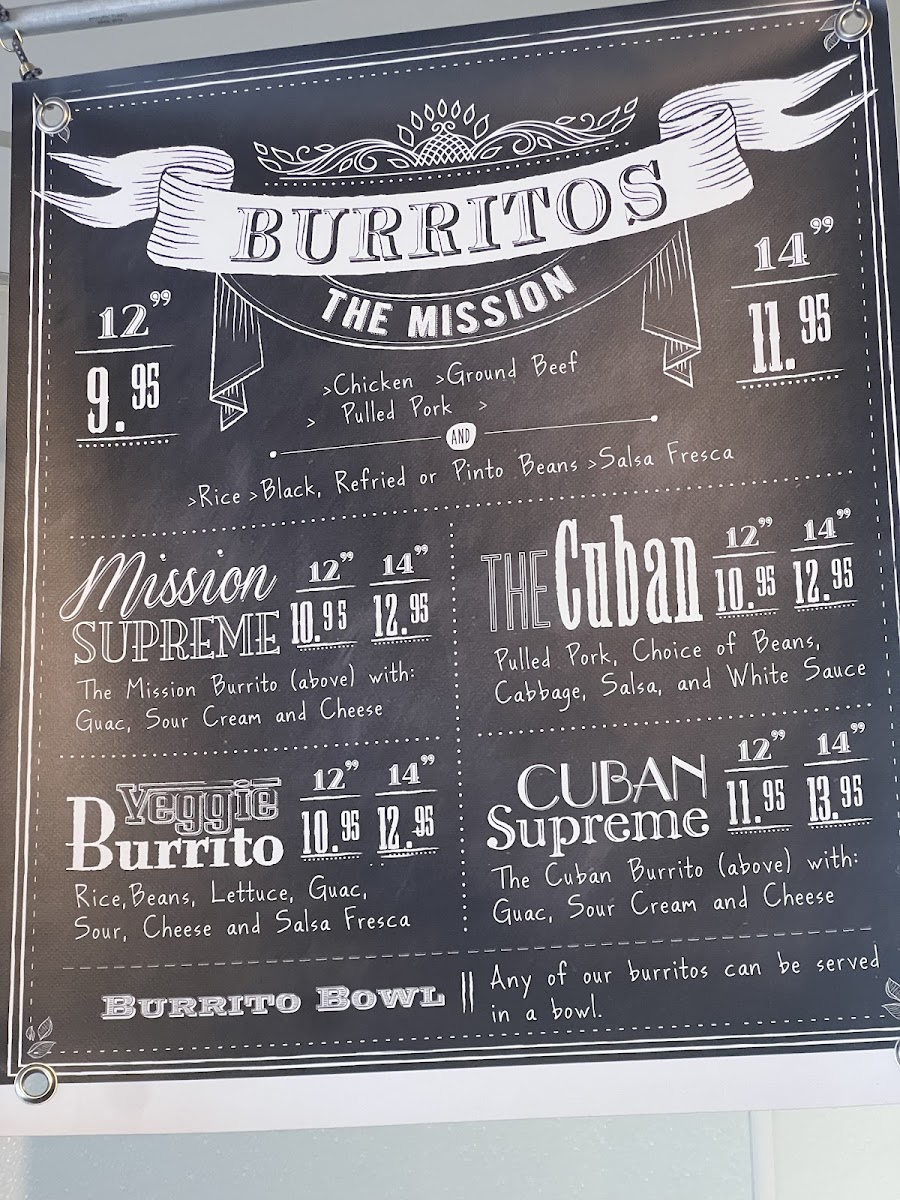 BURRITOS
THE MISSION
12”
9.95
14”
11.95
>Chicken >Ground Beef
> Pulled Pork >
AND
>Rice >Black, Refried or Pinto Beans >Salsa Fresca
Mission
SUPREME
12” 14”
10.95 12.95
The Mission Burrito (above) with:
Guac, Sour Cream and Cheese
THE Cuban
12” 14”
10.95 12.95
Pulled Pork, Choice of Beans,
Cabbage, Salsa, and White Sauce
Veggie
Burrito
12” 14”
10.95 12.95
Rice, Beans, Lettuce, Guac,
Sour, Cheese and Salsa Fresca
CUBAN
Supreme
12” 14”
11.95 13.95
The Cuban Burrito (above) with:
Guac, Sour Cream and Cheese
BURRITO BOWL
Any of our burritos can be served
in a bowl.